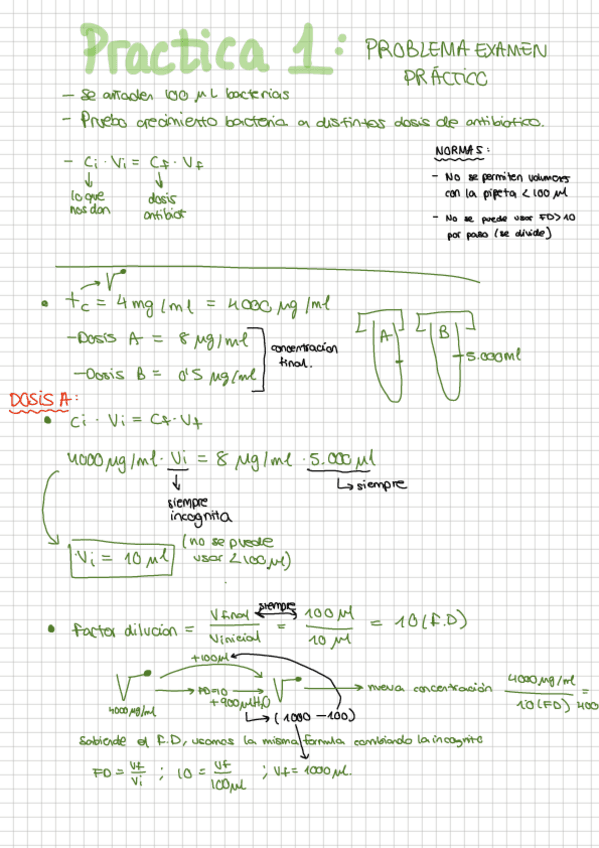 Practica 1: PROBLEMA EXAMEN
PRÁCTICO
- Se añaden 100 µL bacterias
- Pruebo crecimiento bacteria a distintos dosis de antibiotico.
- Ci · Vi = Cf · Vf
lo que
nos dan
dosis
antibiot
NORMAS:
- No se permiten volumenes
con la pipeta < 100 µl
- No se puede usar FD>10
por paso (se divide)
V
• tc = 4 mg/ml = 4000 µg/ml
- Dosis A = 8 µg/ml
- Dosis B = 0'5 µg/ml
concentración
final.
A
B
5.000ml
DOSIS A:
• Ci · Vi = Cf · Vf
4000 µg/ml · Vi = 8 µg/ml · 5.000 µl
↳ siempre
siempre
incognita
Vi = 10 µl
(no se puede
usar < 100 µl)
• Factor dilucion = Vfinal / Vinicial = 100 µl / 10 µl = 10 (F.D)
siempre
+100µl
V → FD=10 → V → nueva concentración 4000 µg/ml / 10 (FD) = 400
4000 µg/ml
+900µl H2O
↳ (1000 - 100)
Sabiendo el F.D, usamos la misma formula cambiando la incognita
FD = Vf / Vi ; 10 = Vf / 100µl ; Vf = 1000 µl.